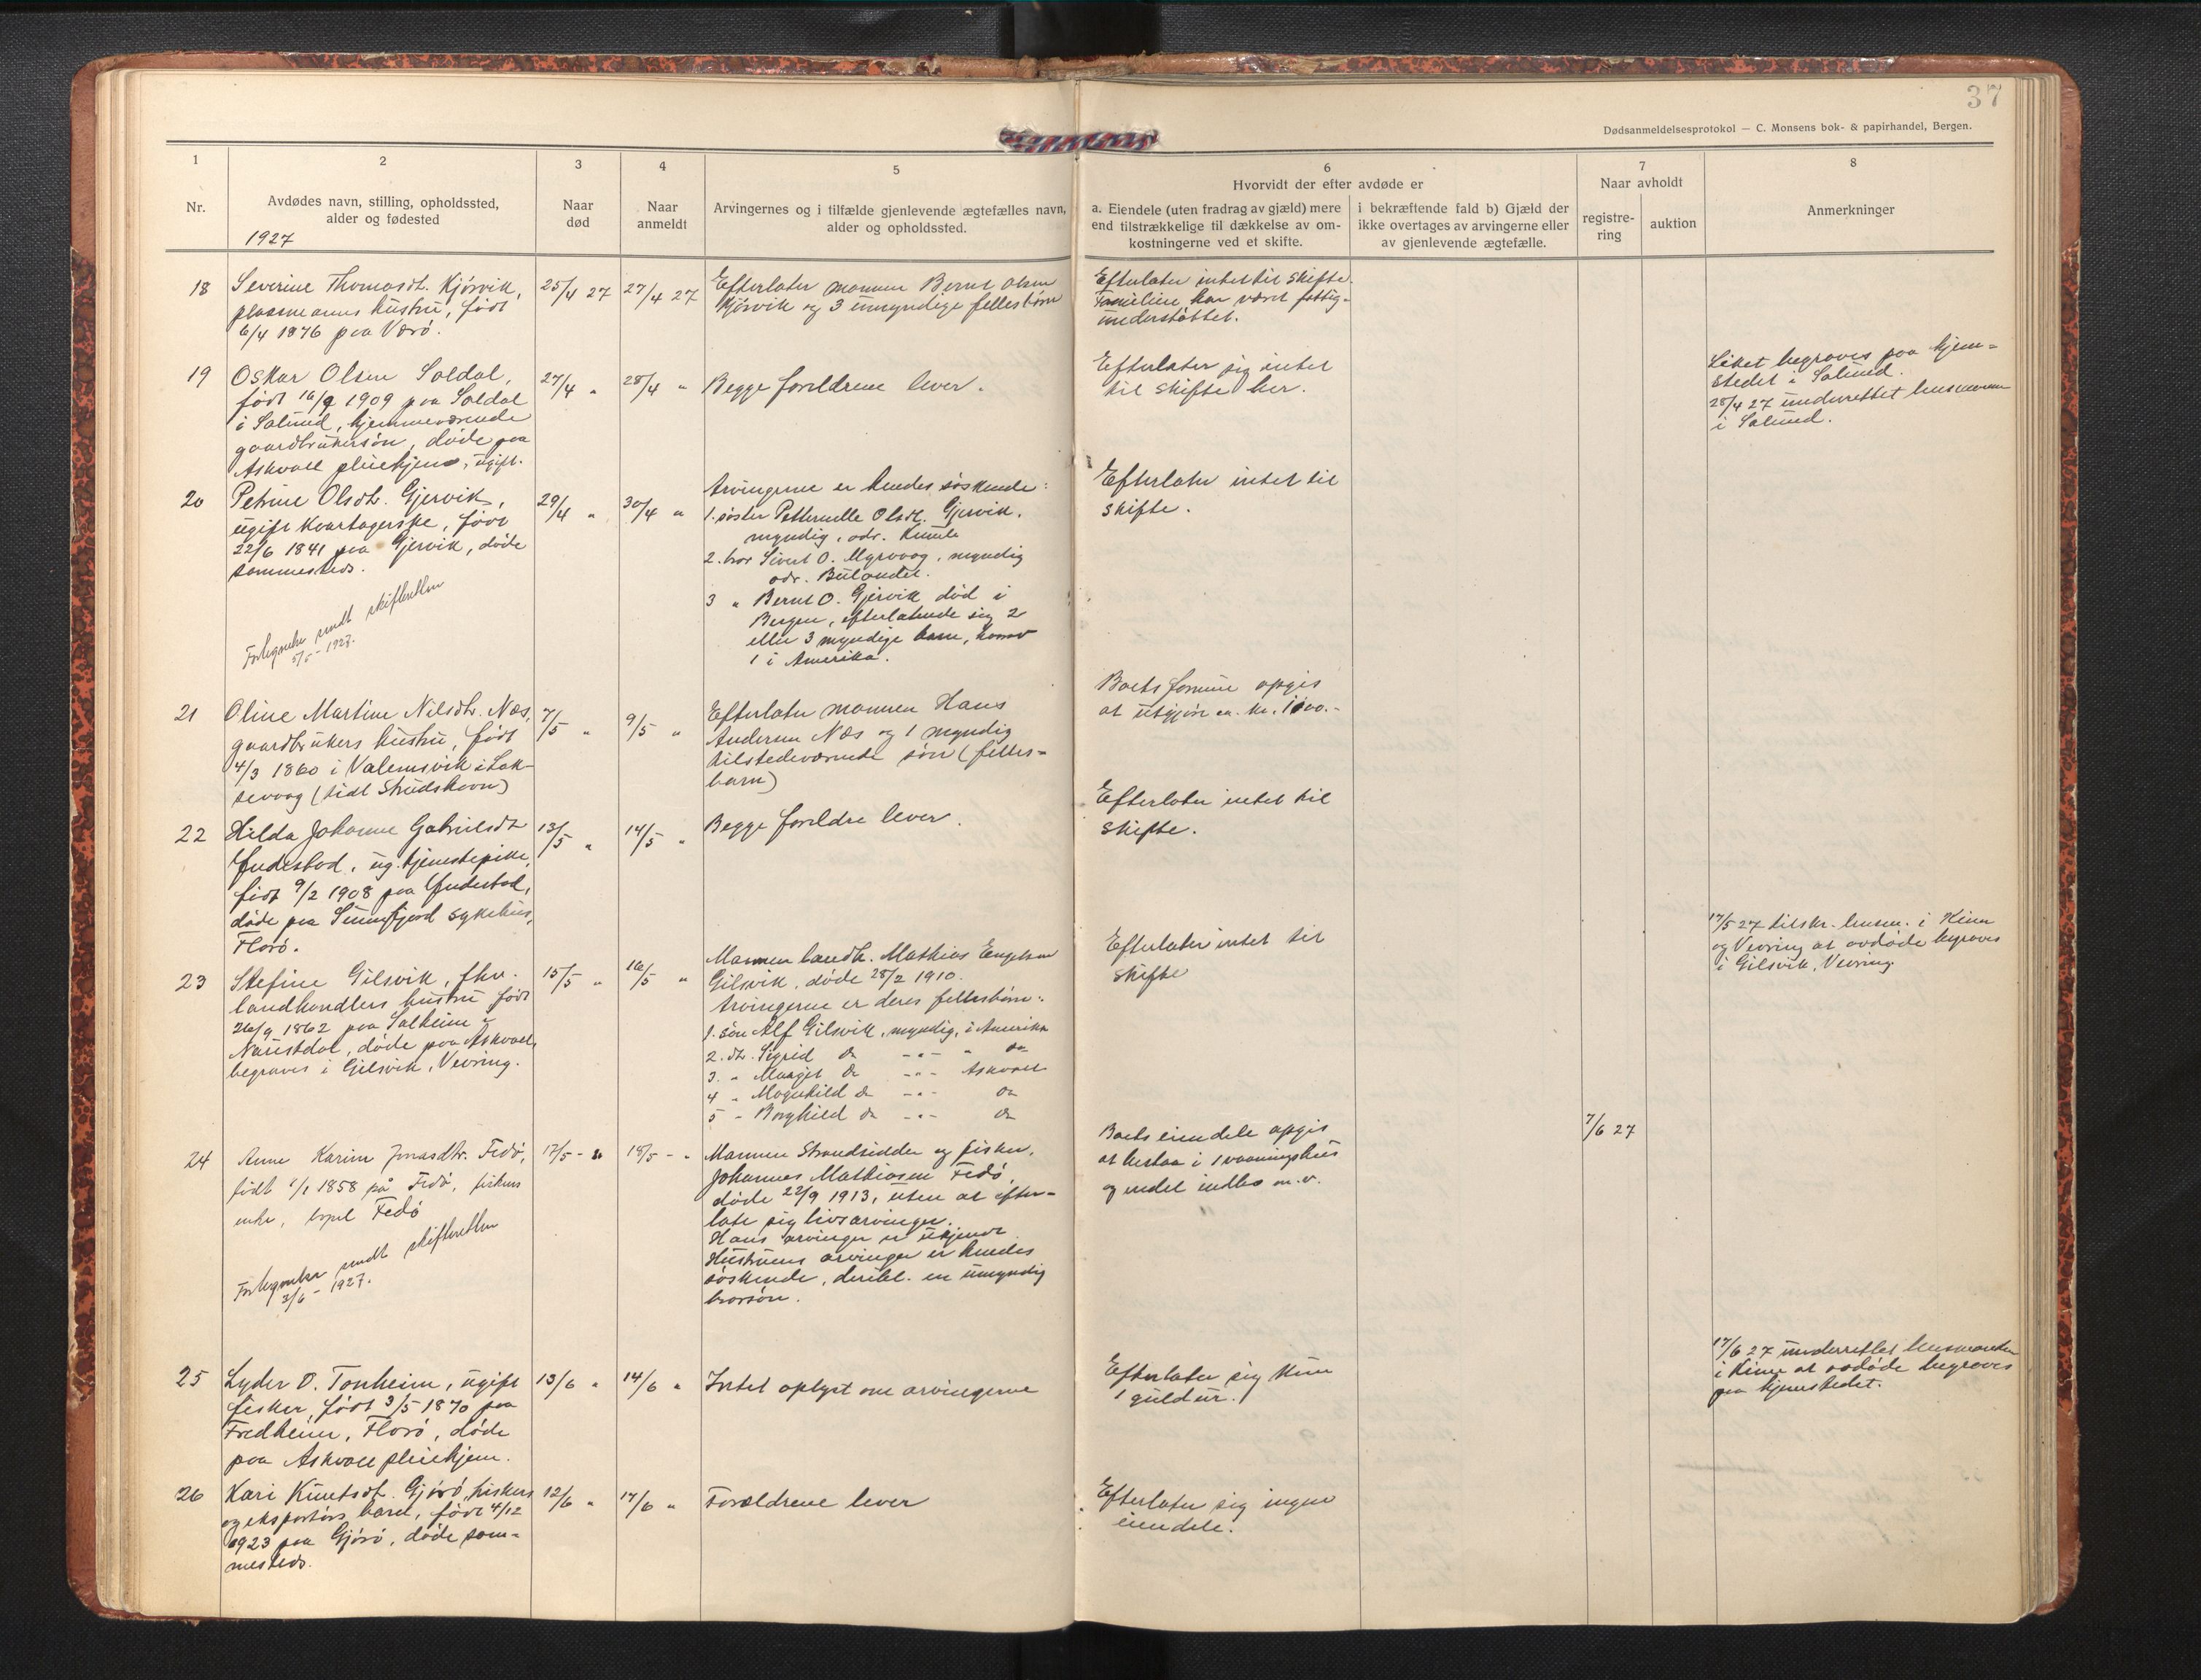 37
Dødsanmeldelsesprotokol — C. Monsens bok- & papirhandel, Bergen.
1
2
3
4
5
6
7
8
Nr.
Avdødes navn, stilling, opholdssted,
alder og fødested
1927
Naar
død
Naar
anmeldt
Arvingernes og i tilfælde gjenlevende ægtefælles navn,
alder og opholdssted.
Hvorvidt der efter avdøde er
a. Eiendele (uten fradrag av gjæld) mere
end tilstrækkelige til dækkelse av om-
kostningerne ved et skifte.
i bekræftende fald b) Gjæld der
ikke overtages av arvingerne eller
av gjenlevende ægtefælle.
Naar avholdt
registre-
ring
auktion
Anmerkninger
18
Severine Thomasdt. Kjørvik,
plassmanns hustru, født
6/4 1876 paa Værø.
25/4 27
27/4 27
Efterlater mannen Bernt Olsen
Kjørvik og 3 umyndige fellesbørn
Efterlater intet til skifte.
Familien har været fattig-
understøttet.
19
Oskar Olsen Soldal,
født 16/9 1909 paa Soldal
i Solund, hjemmeværende
gaardbrukersøn, døde paa
Askvoll pleiehjem, ugift.
27/4 "
28/4 "
Begge foreldrene lever.
Efterlater sig intet
til skifte her.
Liket begraves paa hjem-
stedet i Solund.
28/4 27 underrettet lensmannen
i Solund.
20
Petrine Olsdt. Gjervik,
ugift kaartagerske, født
22/6 1841 paa Gjervik, døde
sammesteds.
Forlegenhet sendt skifteretten
5/5 - 1927.
29/4 "
30/4 "
Arvingerne er hendes søskende:
1. søster Petternelle Olsdt. Gjervik,
myndig, adr.
2. bror Sivert O. Myrvaag, myndig
adr. Bulandet.
3 " Bernt O. Gjervik død i
Bergen, efterlatende sig 2
eller 3 myndige barn, hvorav
1 i Amerika.
Efterlater intet til
skifte.
21
Oline Martine Nilsdt. Næs,
gaardbrukers hustru, født
4/3 1860 i Valemsvik i Lak-
sevaag (tidl Strudshavn)
7/5 "
9/5 "
Efterlater mannen Hans
Andersen Næs og 1 myndig
tilstedeværende søn (felles-
barn)
Boets formue opgis
at utgjøre ca. kr. 1000.-
22
Hilda Johanne Gabrielsdt
Yndestad, ug. tjenestepike,
født 9/2 1908 paa Yndestad,
døde paa Sunnfjord sykehus,
Florø.
13/5 "
14/5 "
Begge foreldre lever.
Efterlater intet til
skifte.
23
Stefine Gilsvik, fhv.
landhandlers hustru født
26/9 1862 paa Solheim i
Naustdal, døde paa Askvoll,
begraves i Gilsvik, Vevring.
15/5 "
16/5 "
Mannen landh. Mathias Engelsen
Gilsvik, døde 28/2 1910.
Arvingerne er deres fellesbørn:
1. søn Alf Gilsvik, myndig, i Amerika
2. dt. Sigrid do -"- " do
3. " Margit do -"- Askvoll
4 " Magnhild do -"- do
5 " Borghild do -"- do
Efterlater intet til
skifte
17/5 27 tilskr. lensm. i Kinn
og Vevring at avdøde begraves
i Gilsvik, Vevring
24
Anne Karine Jonasdtr. Fedø,
født 1/1 1858 på Fedø, fiskers
enke, bopel Fedø
Forlegenhet sendt skifteretten
3/6 - 1927.
17/5 - "
18/5 - "
Mannen Strandsidder og fisker,
Johannes Mathiasen Fedø,
døde 22/9 1913, uten at efter-
late sig livsarvinger.
Hans arvinger er ukjendt
Hustruens arvinger er hendes
søskende, deribl. en umyndig
brorsøn.
Boets eiendele opgis
at bestaa i 1 vaaningshus
og endel indbo m.v.
7/6 27
25
Lyder O. Tonheim, ugift
fisker, født 3/5 1870 paa
Fredheim, Florø, døde
paa Askvoll pleiehjem.
13/6 "
14/6 "
Intet oplyst om arvingerne
Efterlater sig kun
1 guldur.
17/6 27 underrettet lensmanden
i Kinn at avdøde begraves
paa hjemstedet.
26
Kari Knutsdt. Gjørø, fiskers
og eksportørs barn, født 4/12
1923 paa Gjørø, døde sam-
mesteds.
12/6 "
17/6 "
Forældrene lever
Efterlater sig ingen
eiendele.